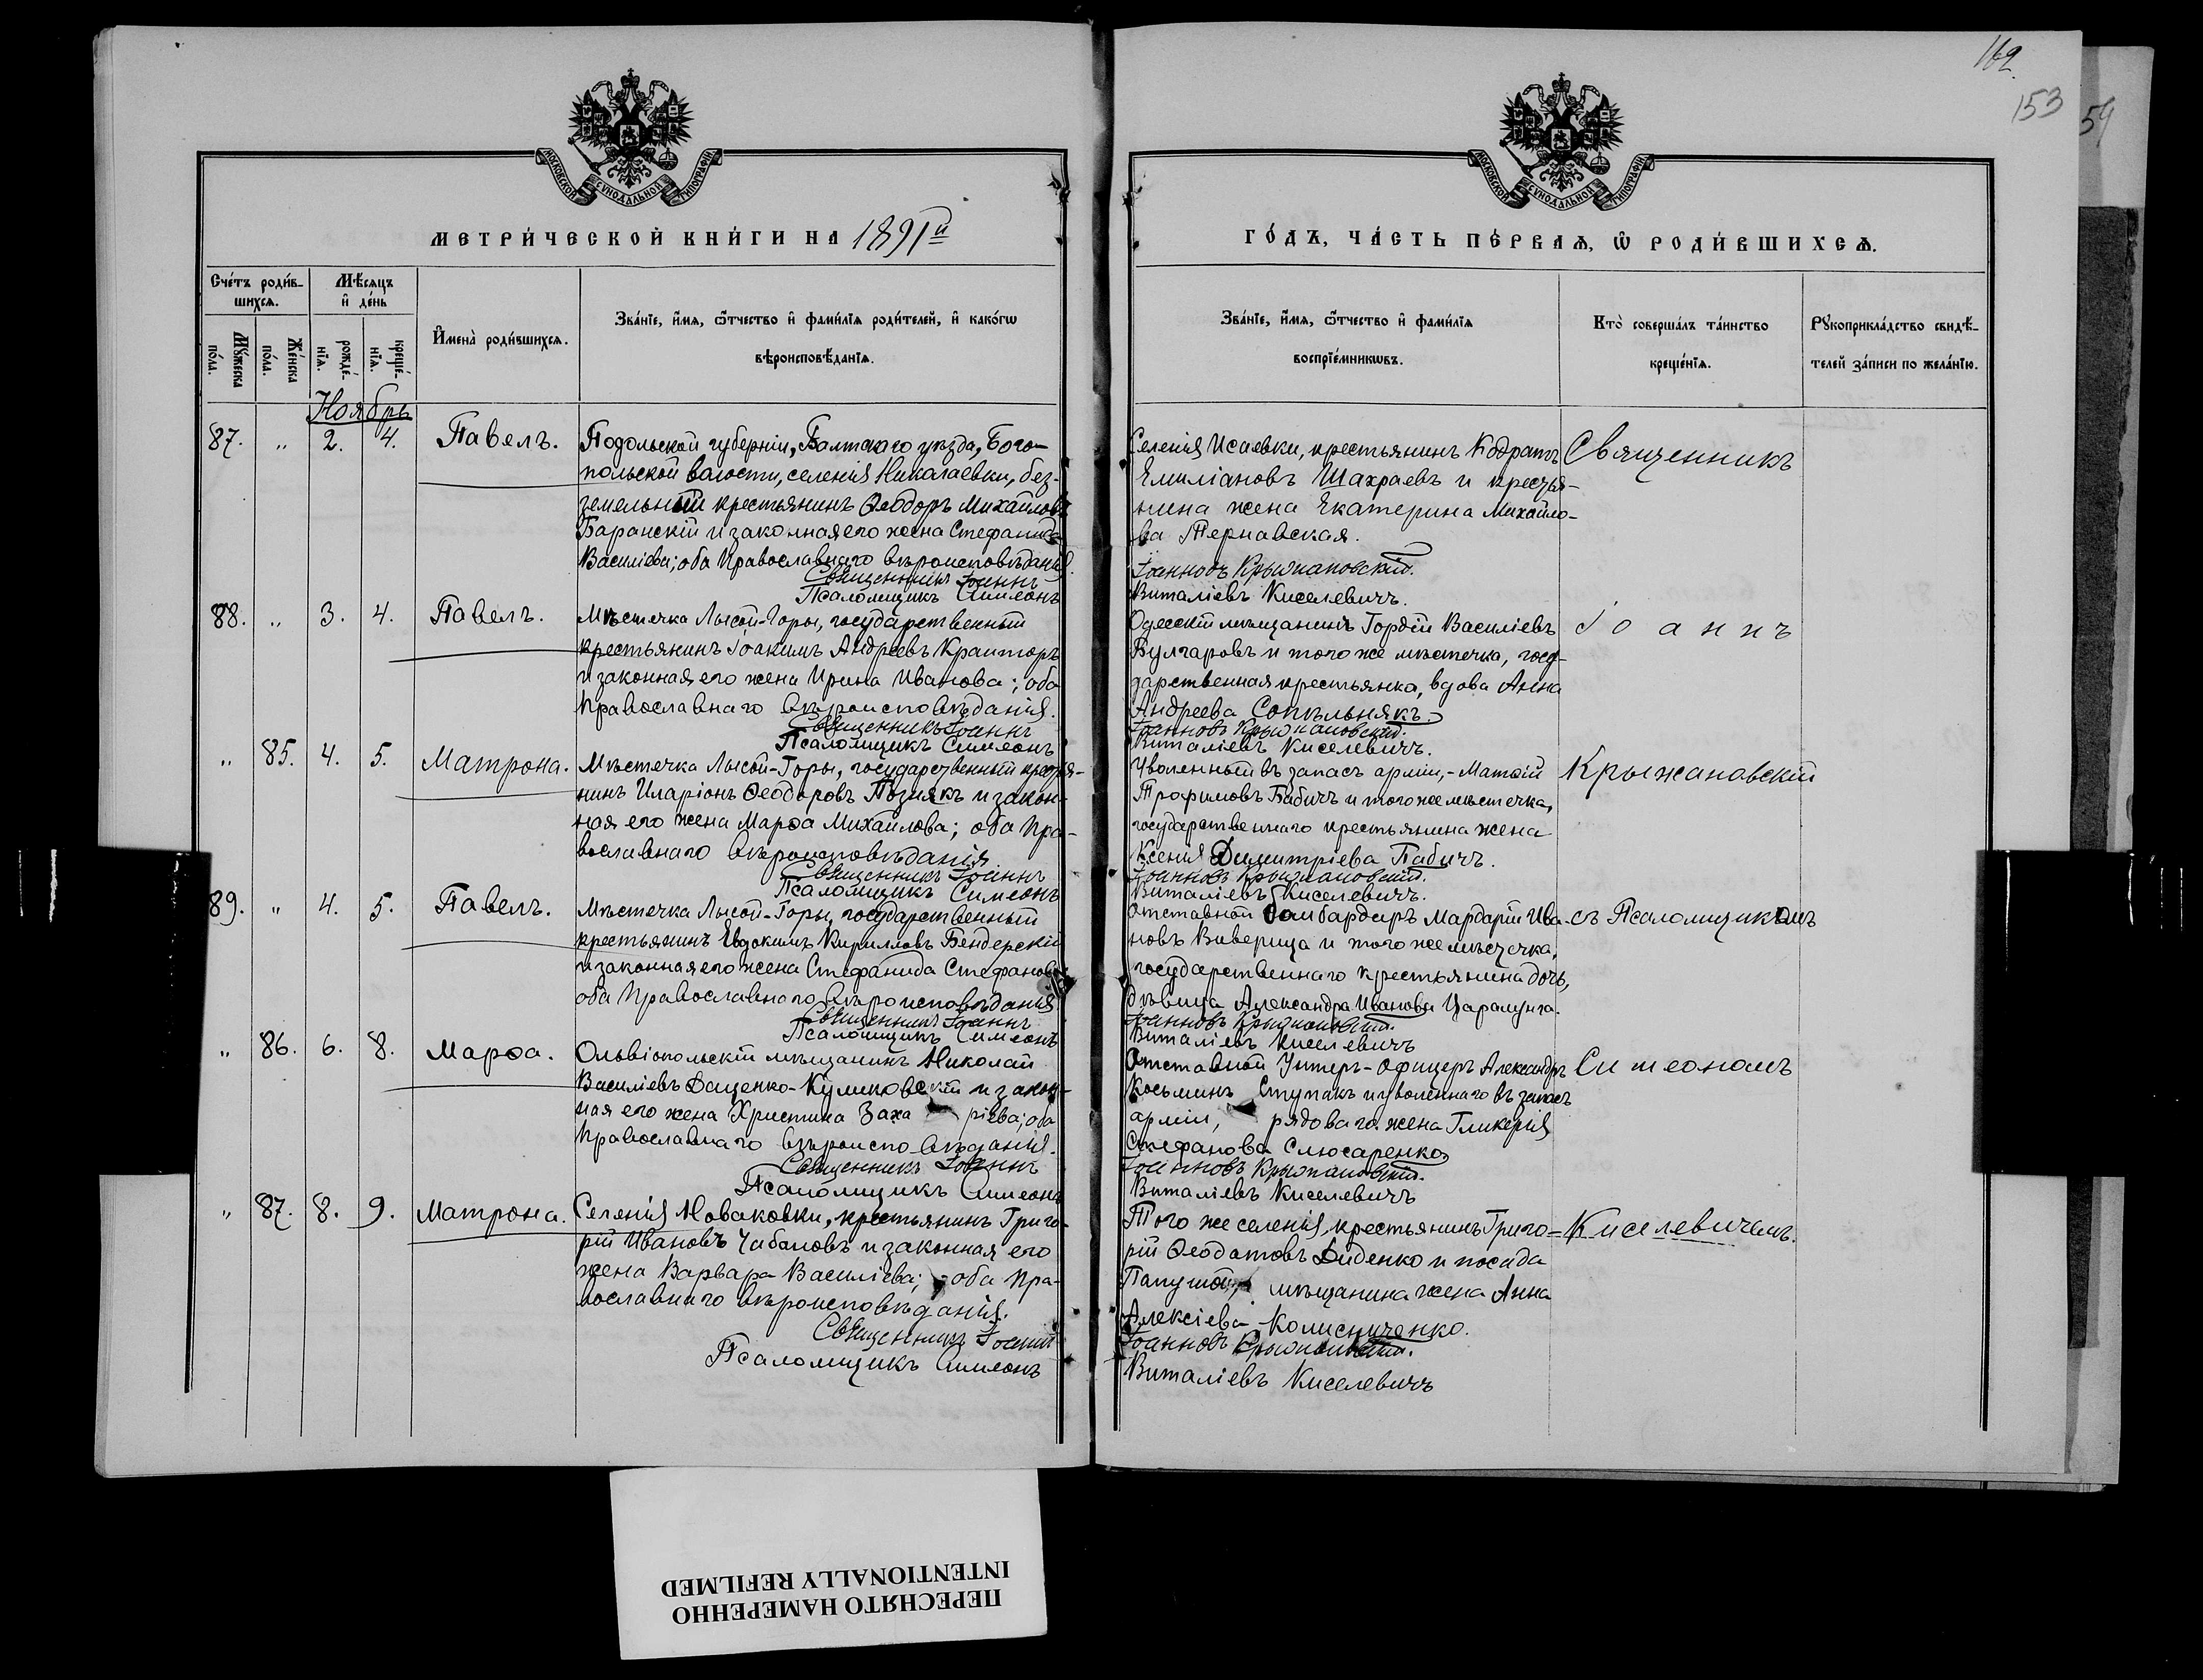 162.
153
54
МОСКОВСКОЙ СУНОДАЛЬНОЙ ТИПОГРАФІИ
МОСКОВСКОЙ СУНОДАЛЬНОЙ ТИПОГРАФІИ
МЕТРИ́ЧЕСКОЙ КНИ́ГИ НА 1891й
ГО́ДЪ, ЧА́СТЬ ПЕ́РВАѦ, Ѿ РОДИ́ВШИХСѦ.
Сче́тъ роди́в-
шихсѧ.
Мꙋ́жеска по́ла.
Же́нска по́ла.
Мѣ́сѧцъ и҆ де́нь
рожде́-нїѧ.
креще́-нїѧ.
И҆мена̀ роди́вшихсѧ.
Зва́нїе, и҆́мѧ, ѻ҆́тчество и҆ фами́лїѧ роди́телей, и҆ како́гѡ
вѣроисповѣ́данїѧ.
Зва́нїе, и҆́мѧ, ѻ҆́тчество и҆ фами́лїѧ
воспрїе́мникѡвъ.
Кто̀ соверша́лъ та́инство
креще́нїѧ.
Рꙋкоприкла́дство свидѣ́-
телей за́писи по жела́нїю.
Ноябрь
87. „ 2. 4. Павелъ.
Подольской губерніи, Балтскаго уѣзда, Бого-
польской волости, селенія Николаевки, без-
земельный крестьянинъ Ѳеодоръ Михайловъ
Баранскій и законная его жена Стефанида
Василіева; оба Православнаго вѣроисповѣданія.
Священникъ Іоаннъ
Псаломщикъ Симеонъ
Селенія Исаевки, крестьянинъ Кодратъ
Емиліановъ Шахраевъ и крестья-
нина жена Екатерина Михайло-
ва Тернавская.
Іоанновъ Крыжановскій.
Виталіевъ Киселевичъ.
Священникъ
88. „ 3. 4. Павелъ.
Мѣстечка Лысой-Горы, государственный
крестьянинъ Іоакимъ Андреевъ Крайторъ
и законная его жена Ирина Иванова; оба
Православнаго вѣроисповѣданія.
Священникъ Іоаннъ
Псаломщикъ Симеонъ
Одесскій мѣщанинъ Гордій Василіевъ
Булгаровъ и того же мѣстечка, госу-
дарственная крестьянка, вдова Анна
Андреева Сопѣльнякъ.
Іоанновъ Крыжановскій.
Виталіевъ Киселевичъ.
Іоаннъ
„ 85. 4. 5. Матрона.
Мѣстечка Лысой-Горы, государственный крестья-
нинъ Иларіонъ Ѳеодоровъ Познякъ и закон-
ная его жена Марѳа Михайлова; оба Пра-
вославнаго вѣроисповѣданія.
Священникъ Іоаннъ
Псаломщикъ Симеонъ
Уволенный въ запасъ арміи, - Матѳій
Трофимовъ Бабичъ и того же мѣстечка,
государственнаго крестьянина жена
Ксенія Димитріева Бабичъ.
Іоанновъ Крыжановскій.
Виталіевъ Киселевичъ.
Крыжановскій
89. „ 4. 5. Павелъ.
Мѣстечка Лысой-Горы, государственный
крестьянинъ Евдокимъ Кирилловъ Бендерскій
и законная его жена Стефанида Стефанова
оба Православнаго вѣроисповѣданія
Священникъ Іоаннъ
Псаломщикъ Симеонъ
Отставной бомбардиръ Мардарій Ива-
новъ Виверица и того же мѣстечка,
государственнаго крестьянина дочь,
дѣвица Александра Иванова
Іоанновъ Крыжановскій.
Виталіевъ Киселевичъ
съ Псаломщикомъ
„ 86. 6. 8. Марѳа.
Ольвіопольскій мѣщанинъ Николай
Василіевъ Даценко-Куликовскій и закон-
ная его жена Христина Заха ріева; оба
Православнаго вѣроисповѣданія.
Священникъ Іоаннъ
Псаломщикъ Симеонъ
Отставной Унтеръ-офицеръ Александръ
Косьминъ Ступакъ и уволеннаго въ запасъ
арміи, рядоваго жена Гликерія
Стефанова Слюсаренко.
Іоанновъ Крыжановскій.
Виталіевъ Киселевичъ
Симеономъ
„ 87. 8. 9. Матрона.
Селенія Новаковки, крестьянинъ Григо-
рій Ивановъ Чабановъ и законная его
жена Варвара Василіева; оба Пра-
вославнаго вѣроисповѣданія.
Священникъ Іоаннъ
Псаломщикъ Симеонъ
Того же селенія, крестьянинъ Григо-
рій Ѳеодотовъ Диденко и посада
мѣщанина жена Анна
Алексіева Колисниченко.
Іоанновъ Крыжановскій.
Виталіевъ Киселевичъ
Киселевичемъ.
ПЕРЕСНЯТО НАМЕРЕННО
INTENTIONALLY REFILMED